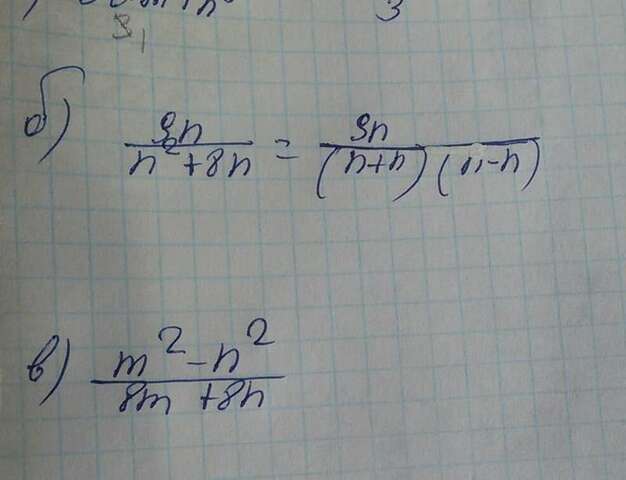 3
б) 9n / n² + 8n = 9n / (n+n)(n-n)
в) m² - n² / 8m + 8n